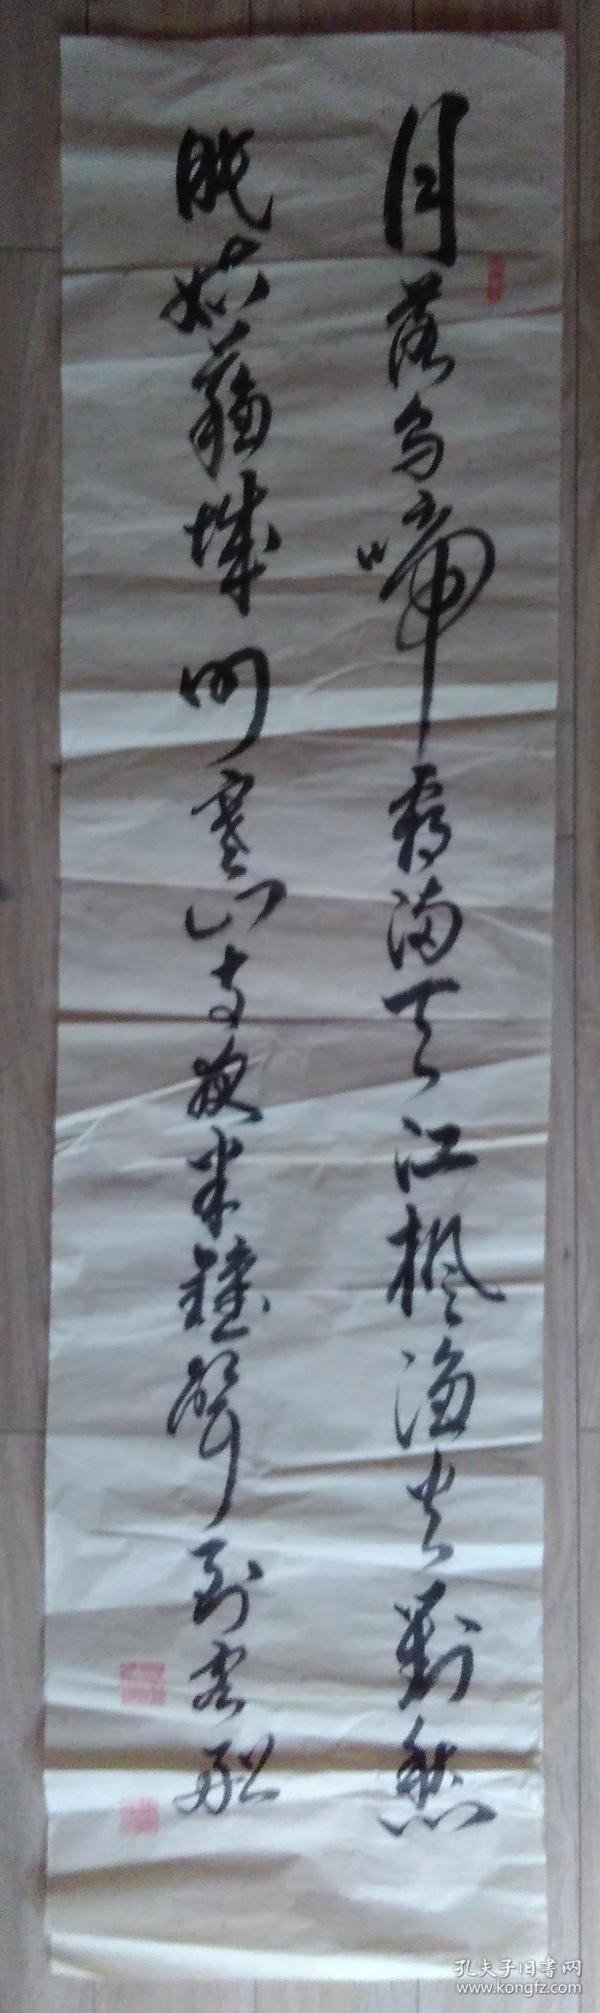 月落烏啼霜满天江楓漁火對愁
眠姑蘇城外寒山寺夜半鐘聲到客船
孔夫子旧書网
www.kongfz.com